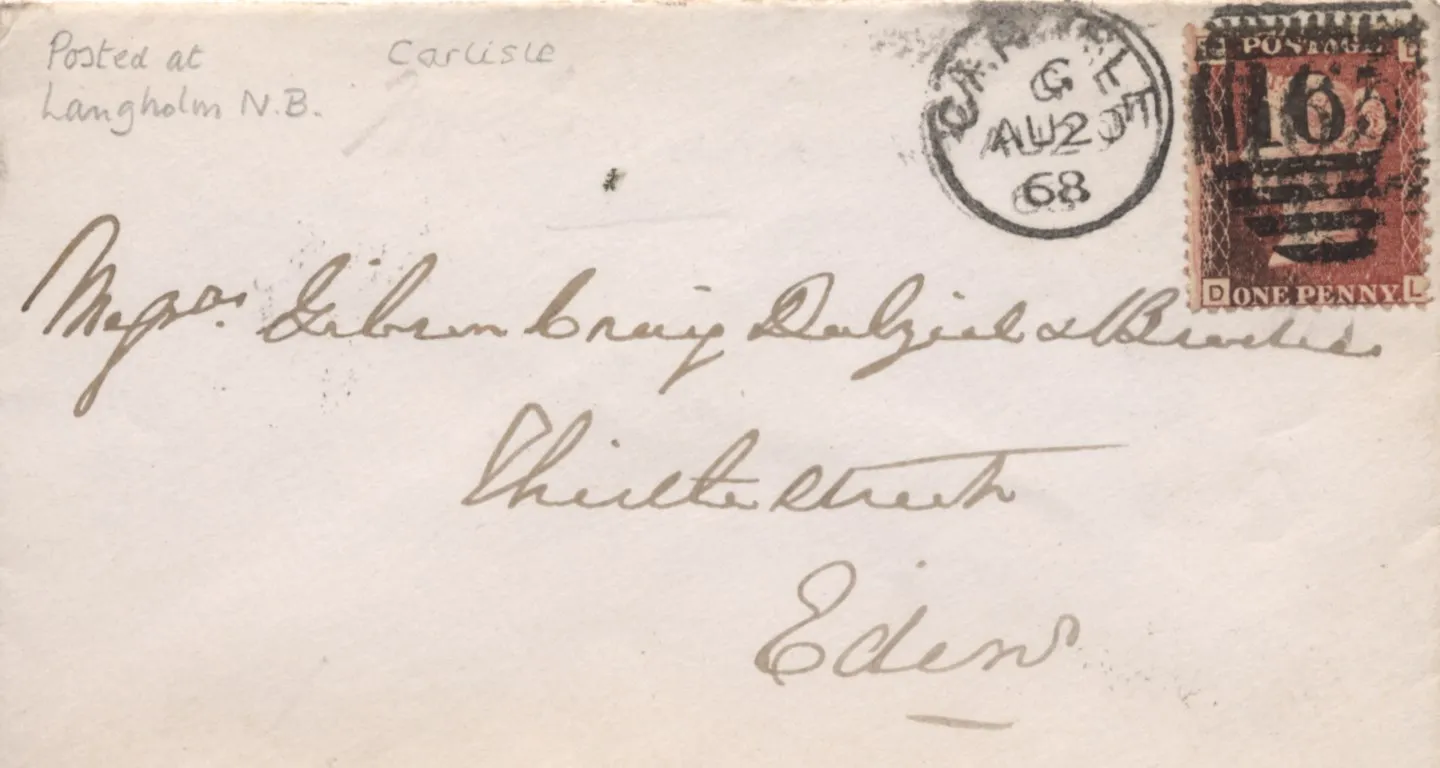 Posted at Carlisle
Langholm N.B.
CARLISLE
G
AU 20
68
POSTAGE
L D
165
D ONE PENNY L
Messrs. Gibson Craig Dalziel & Brodies
Thistle Street
Edinr